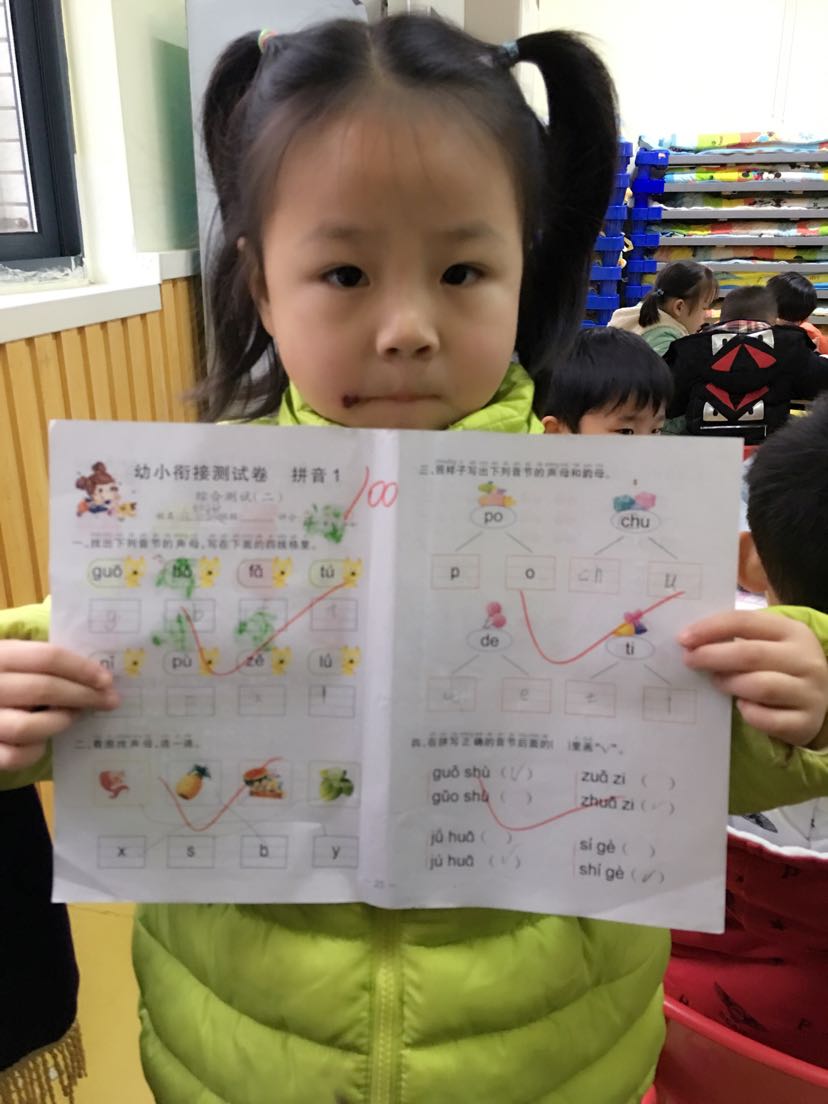 幼小衔接测试卷 拼音1
综合测试(二)
100
一、找出下列音节的声母,写在下面的四线格里。
guō fā tú
g t
pù zé lú
l
二、看图找声母,连一连。
x s b y
三、照样子写出下列音节的声母和韵母。
po chu
p o ch u
de ti
e t i
四、在拼写正确的音节后面的( )里画“√”。
guǒ shù (√) zuō zi ( )
gǔo shù ( ) zhuō zi (√)
jǘ huā ( ) sí gè ( )
jú huā (√) shí gè (√)
- 23 -